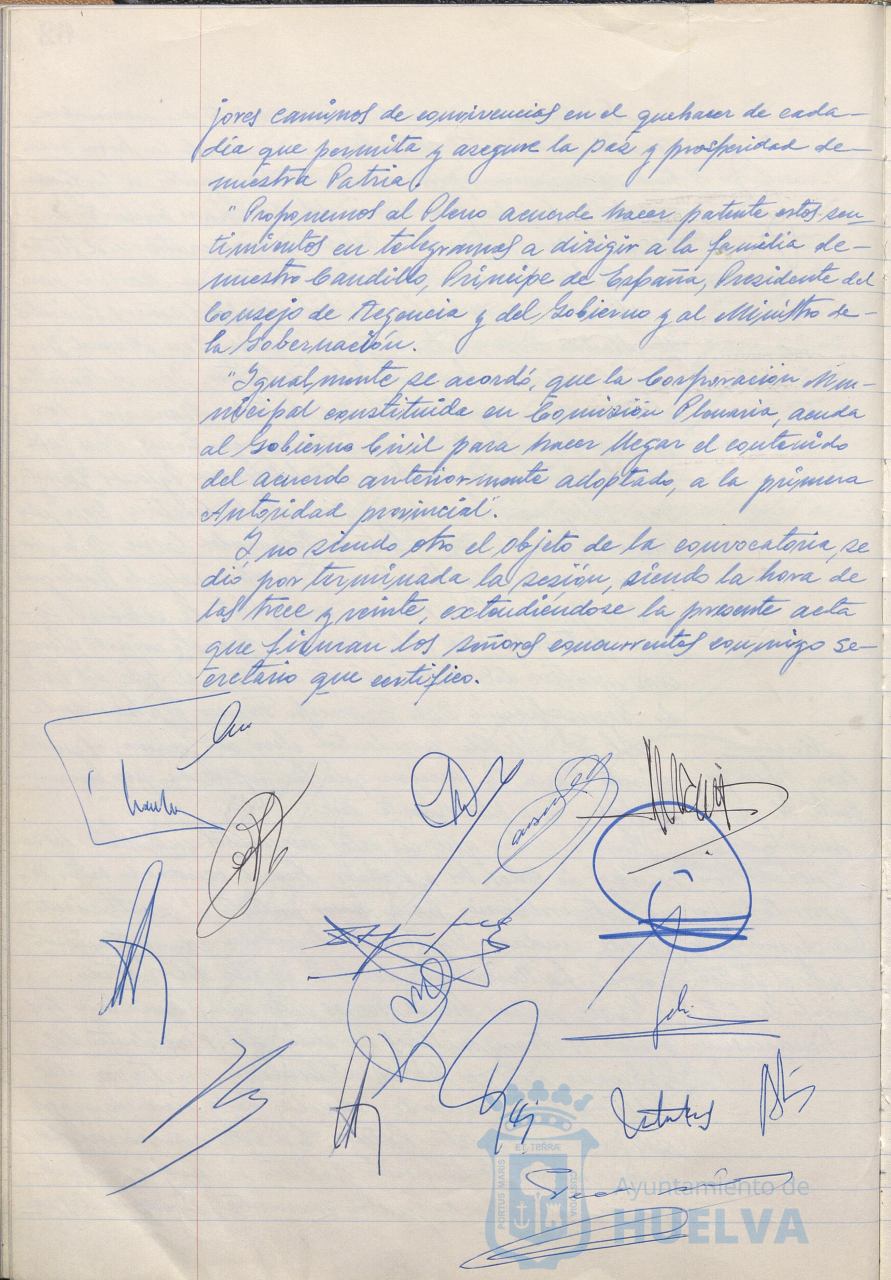 jores caminos de convivencias en el quehacer de cada-
día que permita y asegure la paz y prosperidad de-
nuestra Patria.
"Proponemos al Pleno acuerde hacer patente estos sen-
timientos en telegramas a dirigir a la familia de-
nuestro Caudillo, Príncipe de España, Presidente del
Consejo de Regencia y del Gobierno y al Ministro de-
la Gobernación.
"Igualmente se acordó, que la Corporación Mu-
nicipal constituida en Comisión Plenaria, acuda
al Gobierno Civil para hacer llegar el contenido
del acuerdo anteriormente adoptado, a la primera
Autoridad provincial".
Y no siendo otro el objeto de la convocatoria, se
dió por terminada la sesión, siendo la hora de
las trece y veinte, extendiéndose la presente acta
que firman los señores concurrentes conmigo se-
cretario que certifico.
PORTUS MARIS
ET TERRÆ
CUSTODIA
Ayuntamiento de
HUELVA